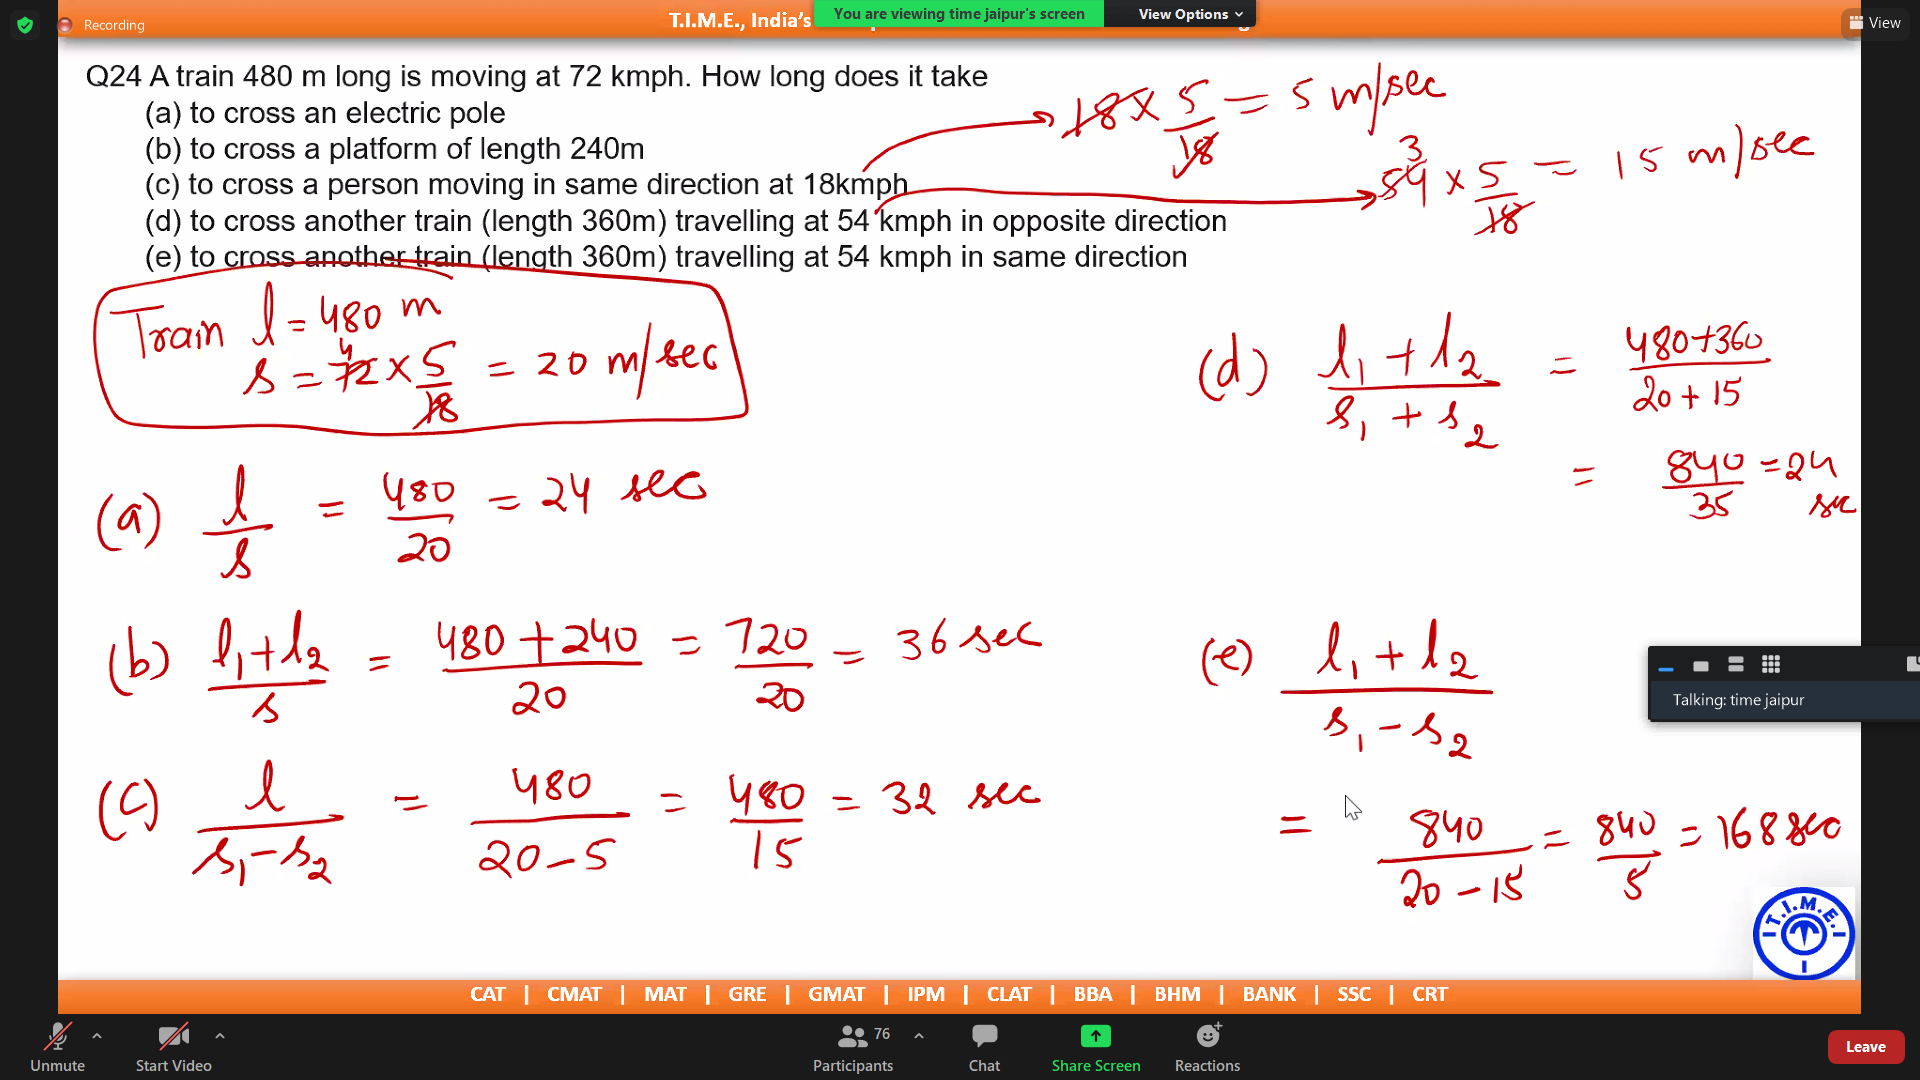 Recording
T.I.M.E., India's
You are viewing time jaipur's screen
View Options
View
Q24 A train 480 m long is moving at 72 kmph. How long does it take
(a) to cross an electric pole
(b) to cross a platform of length 240m
(c) to cross a person moving in same direction at 18kmph
(d) to cross another train (length 360m) travelling at 54 kmph in opposite direction
(e) to cross another train (length 360m) travelling at 54 kmph in same direction
18 × 5/18 = 5 m/sec
3
54 × 5/18 = 15 m/sec
Train l = 480 m
4
s = 72 × 5/18 = 20 m/sec
(a) l/s = 480/20 = 24 sec
(b) l₁+l₂/s = 480+240/20 = 720/20 = 36 sec
(c) l/s₁-s₂ = 480/20-5 = 480/15 = 32 sec
(d) l₁+l₂/s₁+s₂ = 480+360/20+15
= 840/35 = 24 sec
(e) l₁+l₂/s₁-s₂
= 840/20-15 = 840/5 = 168 sec
Talking: time jaipur
T.I.M.E.
CAT | CMAT | MAT | GRE | GMAT | IPM | CLAT | BBA | BHM | BANK | SSC | CRT
Unmute
Start Video
76
Participants
Chat
Share Screen
Reactions
Leave